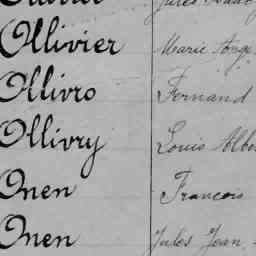 Ollivier Marie Ange
Ollivro Fernand
Ollivry Louis Albe
Onen François
Onen Jules Jean